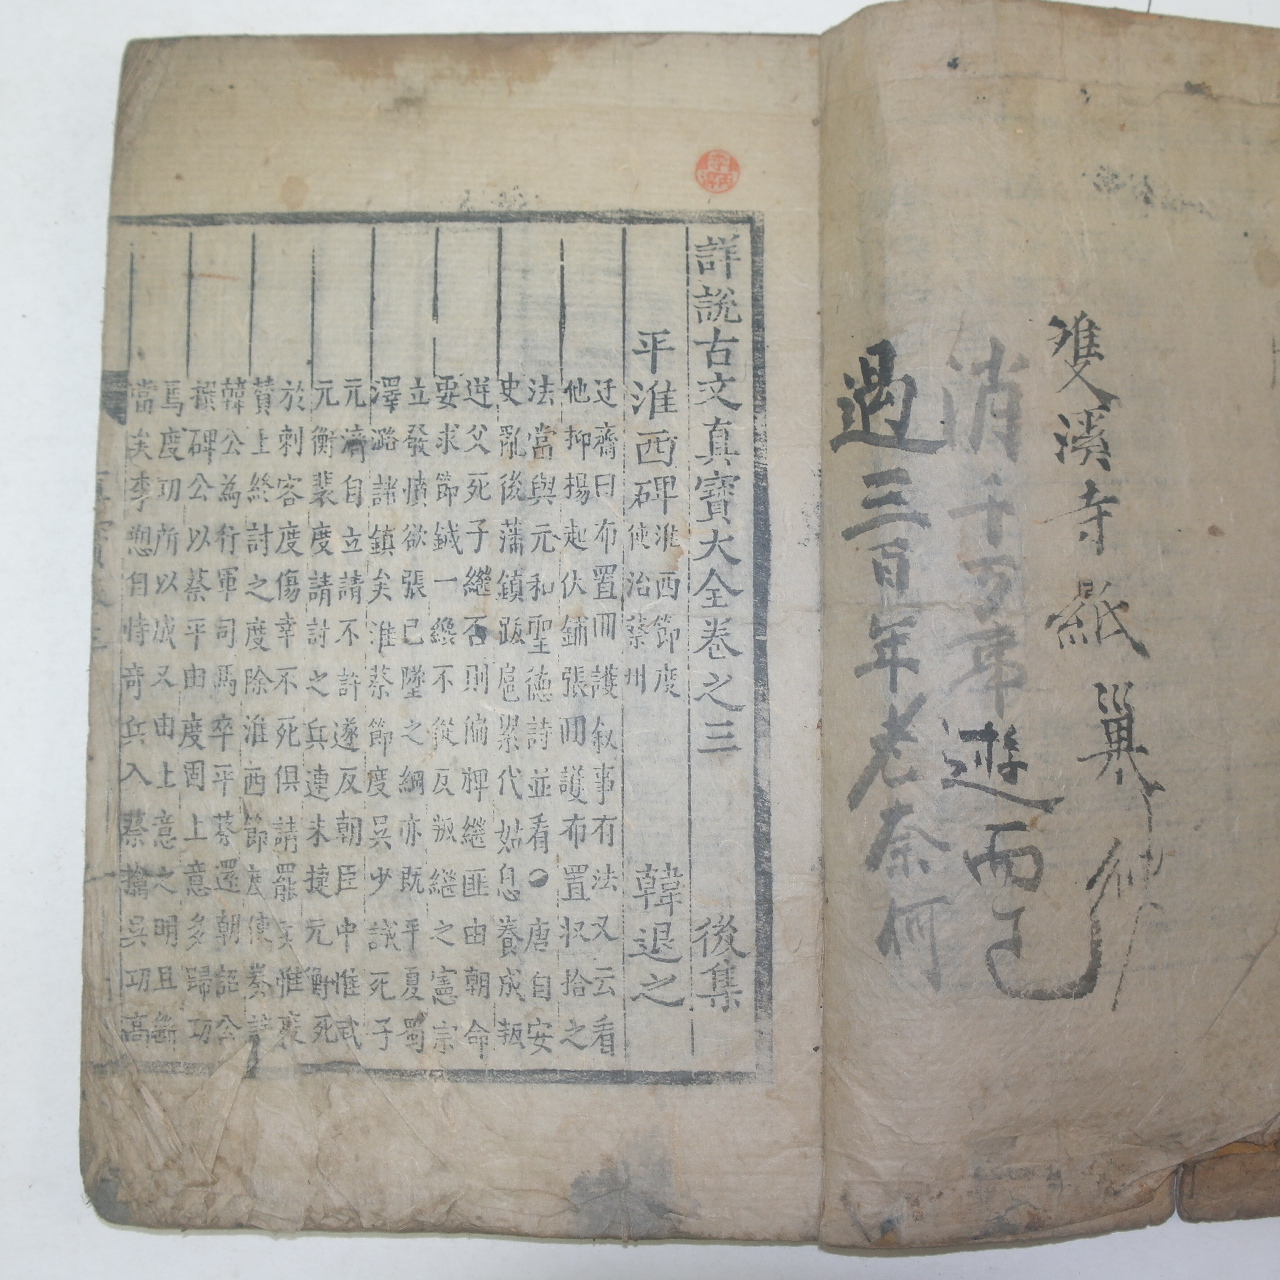 雙溪寺紙
遊而已
過三百年老奈何
詳說古文真寶大全卷之三 後集
平淮西碑 淮西節度使治蔡州 韓退之
迂齋曰布置回護叙事有法又云看
他抑揚起伏鋪張回護布置收拾之
法當與元和聖德詩並看●唐自安
史亂後藩鎮跋扈累代姑息養成叛
逆父死子繼否則偏裨繼匪由朝命
要求節鉞一纔不從反叛繼之憲宗
立發憤欲張已墜之綱亦既平夏蜀
澤潞諸鎮矣淮蔡節度吳少誠死子
元濟自立請不許遂反朝臣中惟武
元衡裴度請討之兵連未捷元衡死
於刺客度傷幸不死俱請罷兵惟裴
贊上終討之度除淮西節度使奏請
韓公為行軍司馬卒平蔡還朝詔公
撰碑公以蔡平由度固上意多歸功
焉度功所以成又由上意之明且斷
當矣李愬自恃奇兵入蔡擒吳功高